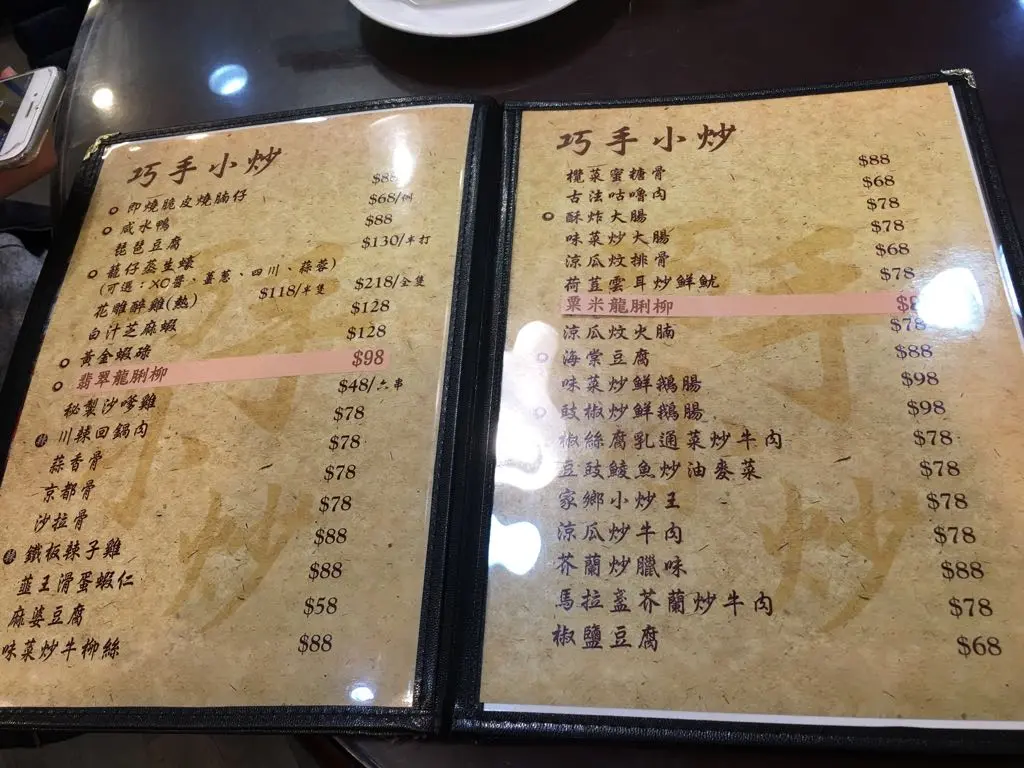 巧手小炒
即燒脆皮燒腩仔 $88
咸水鴨 $68/例
琵琶豆腐 $88
龍仔蒸生蠔 $130/半打
(可選：XO醬、薑蔥、四川、蒜蓉)
花雕醉雞(熱) $118/半隻 $218/全隻
白汁芝麻蝦 $128
黃金蝦碌 $128
翡翠龍脷柳 $98
秘製沙嗲雞 $48/六串
川辣回鍋肉 $78
蒜香骨 $78
京都骨 $78
沙拉骨 $78
鐵板辣子雞 $88
韮王滑蛋蝦仁 $88
麻婆豆腐 $58
味菜炒牛柳絲 $88
巧手小炒
欖菜蜜糖骨 $88
古法咕嚕肉 $68
酥炸大腸 $78
味菜炒大腸 $78
涼瓜炆排骨 $68
荷荳雲耳炒鮮魷 $78
粟米龍脷柳
涼瓜炆火腩 $78
海棠豆腐 $88
味菜炒鮮鵝腸 $98
豉椒炒鮮鵝腸 $98
椒絲腐乳通菜炒牛肉 $78
豆豉鯪魚炒油麥菜 $78
家鄉小炒王 $78
涼瓜炒牛肉 $78
芥蘭炒臘味 $88
馬拉盞芥蘭炒牛肉 $78
椒鹽豆腐 $68